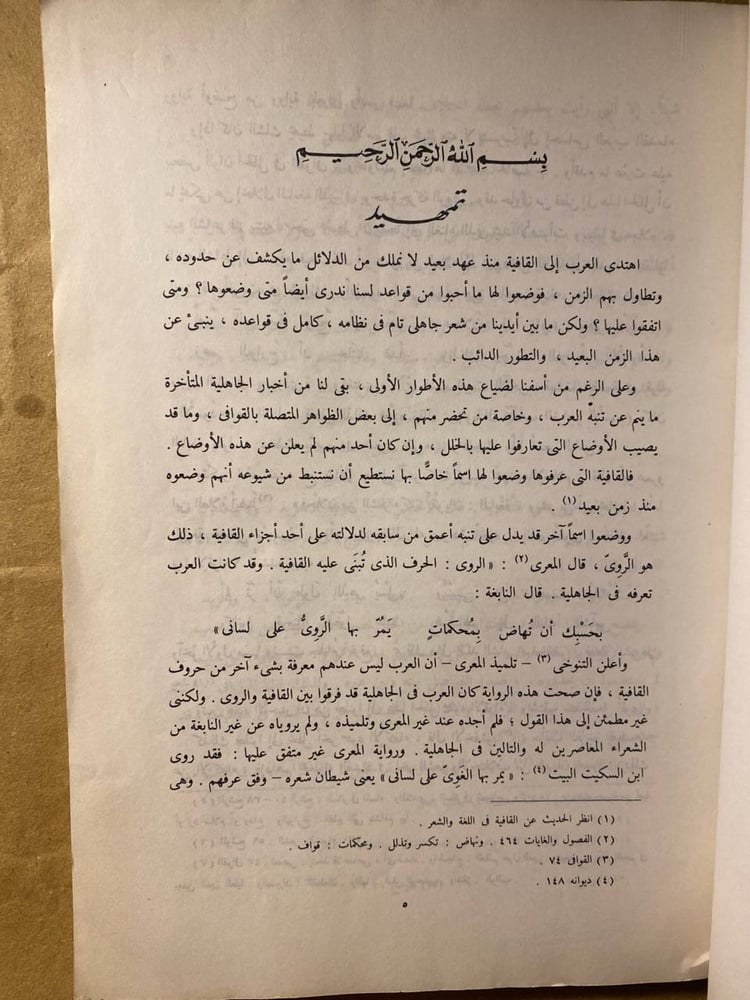 بِسْمِ اللهِ الرَّحْمَنِ الرَّحِيمِ
تمهيد
اهتدى العرب إلى القافية منذ عهد بعيد لا نملك من الدلائل ما يكشف عن حدوده ،
وتطاول بهم الزمن ، فوضعوا لها ما أحبوا من قواعد لسنا ندرى أيضاً متى وضعوها ؟ ومتى
اتفقوا عليها ؟ ولكن ما بين أيدينا من شعر جاهلى تام فى نظامه ، كامل فى قواعده ، ينبئ عن
هذا الزمن البعيد ، والتطور الدائب .
وعلى الرغم من أسفنا لضياع هذه الأطوار الأولى ، بقى لنا من أخبار الجاهلية المتأخرة
ما ينم عن تنبهّ العرب ، وخاصة من تحضر منهم ، إلى بعض الظواهر المتصلة بالقوافى ، وما قد
يصيب الأوضاع التى تعارفوا عليها بالخلل ، وإن كان أحد منهم لم يعلن عن هذه الأوضاع .
فالقافية التى عرفوها وضعوا لها اسماً خاصًّا بها نستطيع أن نستنبط من شيوعه أنهم وضعوه
منذ زمن بعيد(١) .
ووضعوا اسماً آخر قد يدل على تنبه أعمق من سابقه لدلالته على أحد أجزاء القافية ، ذلك
هو الرَّوِىّ ، قال المعرى(٢) : « الروى : الحرف الذى تُبنَى عليه القافية . وقد كانت العرب
تعرفه فى الجاهلية . قال النابغة :
بحَسْبِك أن تُهاض بِمُحكمَاتٍ يَمُرّ بها الرَّوِىُّ على لسانى »
وأعلن التنوخى(٣) – تلميذ المعرى – أن العرب ليس عندهم معرفة بشىء آخر من حروف
القافية ، فإن صحت هذه الرواية كان العرب فى الجاهلية قد فرقوا بين القافية والروى . ولكننى
غير مطمئن إلى هذا القول ؛ فلم أجده عند غير المعرى وتلميذه ، ولم يروياه عن غير النابغة من
الشعراء المعاصرين له والتالين فى الجاهلية . ورواية المعرى غير متفق عليها : فقد روى
ابن السكيت البيت(٤) : « يمر بها الغَوِىّ على لسانى » يعنى شيطان شعره – وفق عرفهم . وهى
(١) انظر الحديث عن القافية فى اللغة والشعر .
(٢) الفصول والغايات ٤٦٤ . ونهاض : تكسر وتذلل . ومحكمات : قواف .
(٣) القوافى ٧٤ .
(٤) ديوانه ١٤٨ .
٥